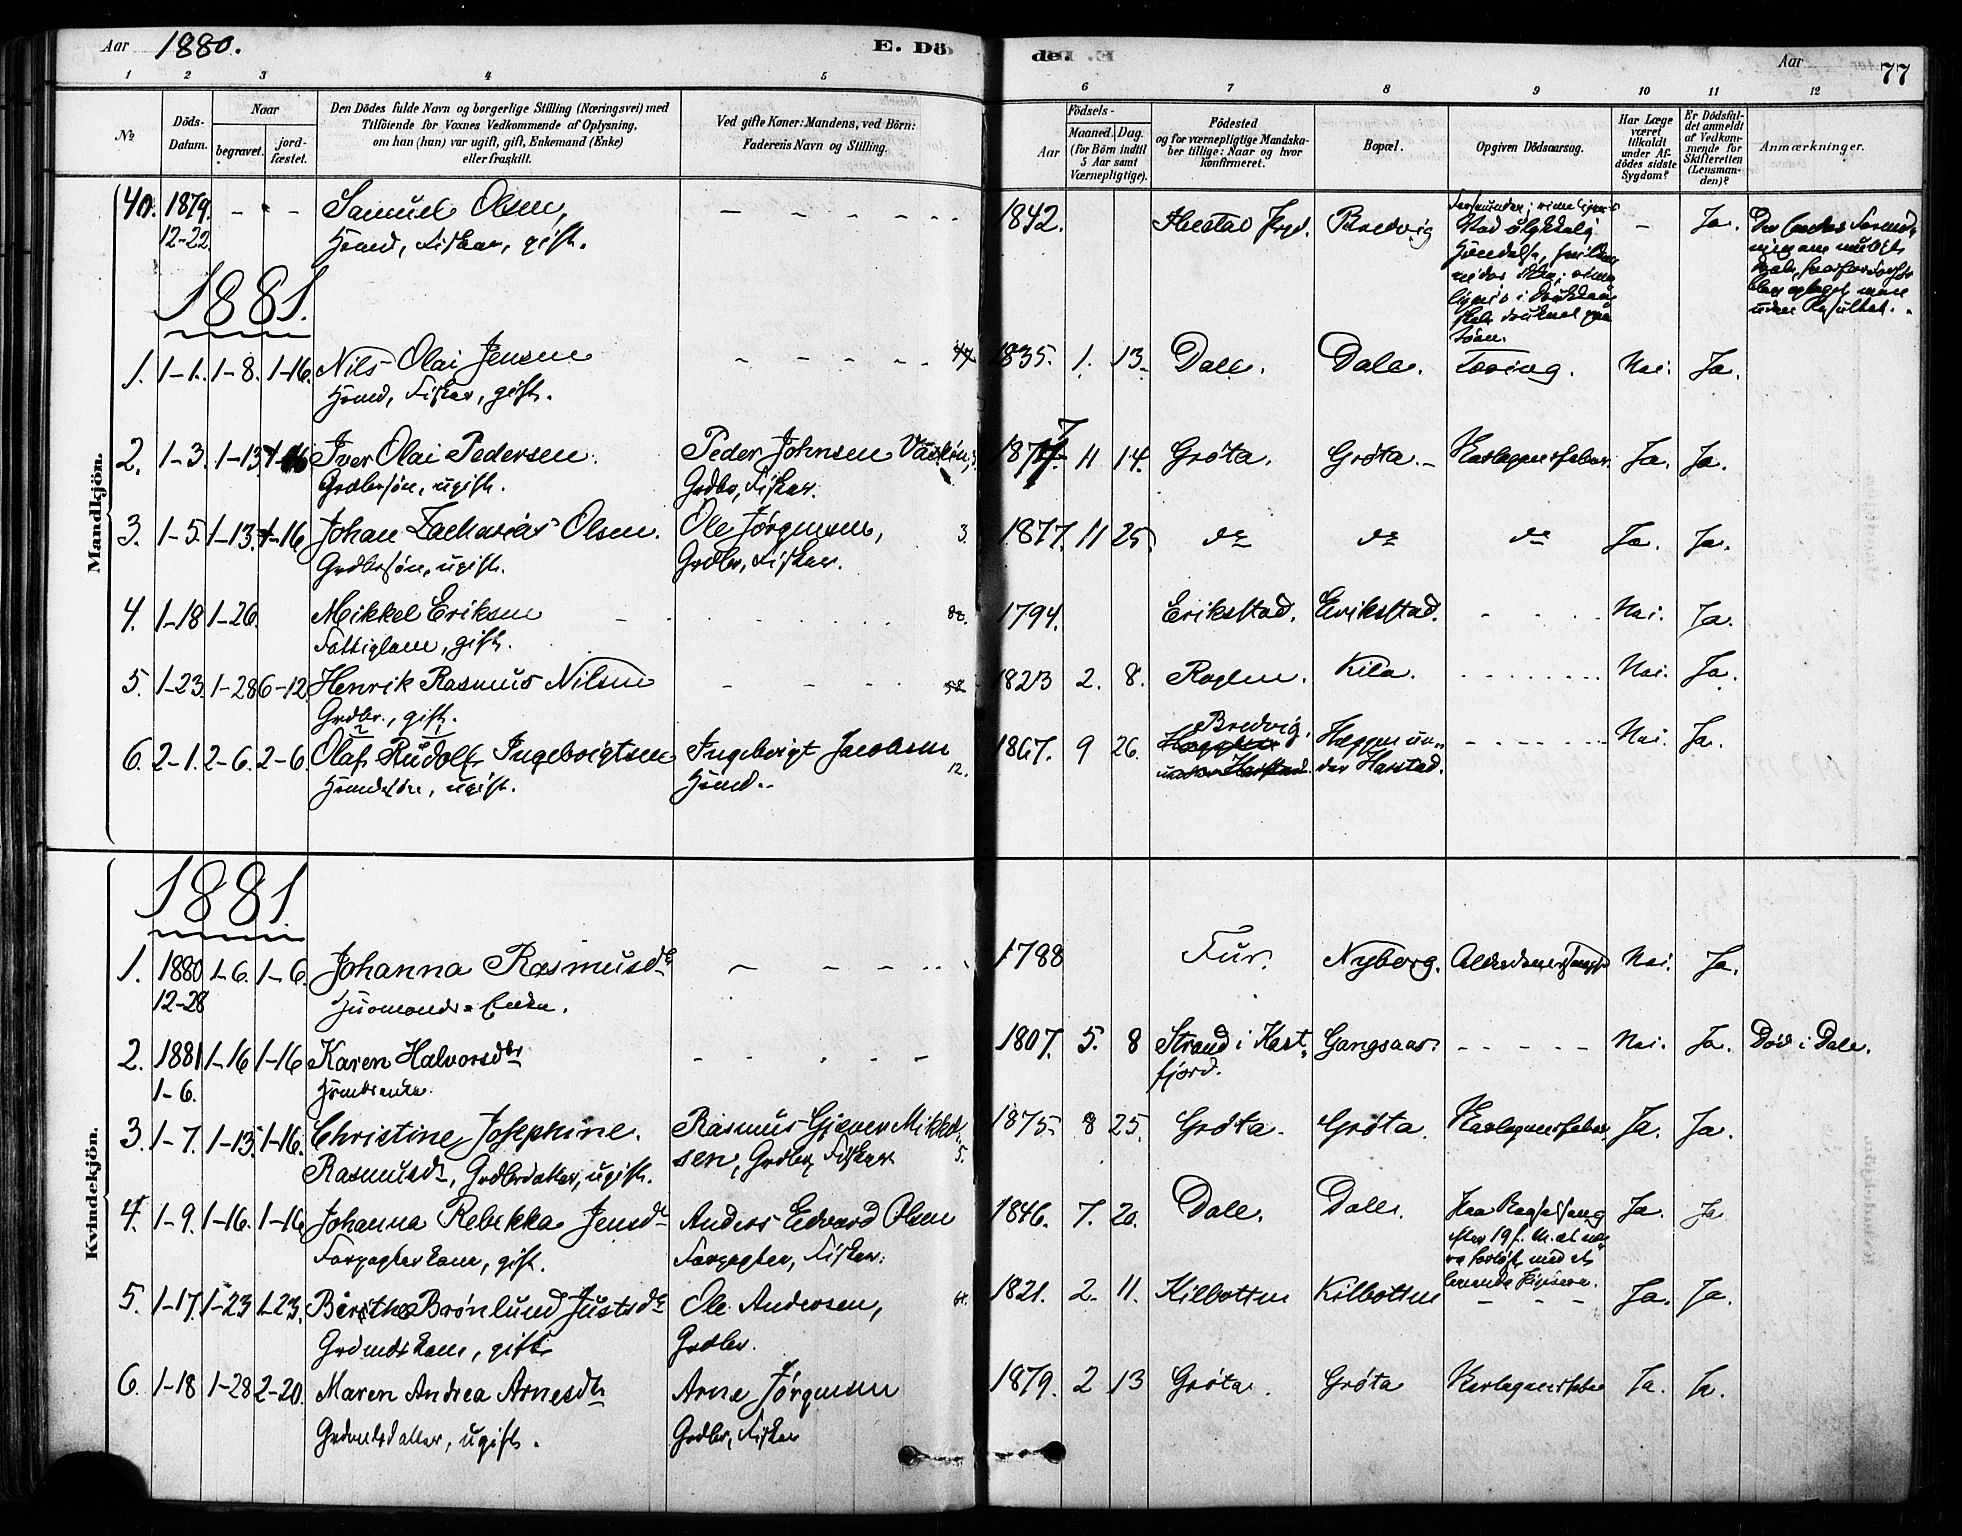 Aar 1880. E. Dö
de. Aar 77
1 2 3 4 5 6 7 8 9 10 11 12
№
Döds-
Datum.
Naar
begravet.
jord-
fæstet.
Den Dödes fulde Navn og borgerlige Stilling (Næringsvei) med
Tilföiende for Voxnes Vedkommende af Oplysning,
om han (hun) var ugift, gift, Enkemand (Enke)
eller fraskilt.
Ved gifte Koner: Mandens, ved Börn:
Faderens Navn og Stilling.
Födsels-
Aar
Maaned. Dag.
(for Börn indtil
5 Aar samt
Værnepligtige).
Födested
og for værnepligtige Mandska-
ber tillige: Naar og hvor
konfirmeret.
Bopæl.
Opgiven Dödsaarsag.
Har Læge
været
tilkaldt
under Af-
dödes sidste
Sygdom?
Er Dödsfal-
det anmeldt
af Vedkom-
mende for
Skifteretten
(Lensman-
den)?
Anmærkninger.
Mandkjön.
40. 1879. - - - Samuel Olsen, - - - - - 1842. Bredvig - Ja.
12-22 Hsmd, Fisker, gift.
1881.
1. 1-1. 1-8. 1-16. Nils Olai Jensen - - - - - 1835. 1. 13. Dale. Dale. Tæring. Nei. Ja.
Hsmd, Fisker, gift.
2. 1-3. 1-13. 1-16 Iver Olai Pedersen. Peder Johnsen 1877 11 14. Grøta. Grøta. Ja. Ja.
Grdbrsøn, ugift. Grdbr, Fisker.
3. 1-5. 1-13. 1-16 Johan Zacharias Olsen. Ole Jørgensen, 3. 1877. 11 25. do do do Ja. Ja.
Grdbrsøn, ugift. Grdbr, Fisker.
4. 1-18 1-26. Mikkel Eriksen 1794. Erikstad. Erikstad. Nei. Ja.
Fattiglem, gift.
5. 1-23. 1-28 6-12. Henrik Rasmus Nilsen 58 1823 2. 8. Kila. Nei. Ja.
Grdbr., gift.
6. 2-1. 2-6. 2-6. Olaf Rudolf Ingebrigtsen Ingebrigt Jacobsen 12. 1867. 9 26. Bredvig. Nei. Ja.
Hsmdssøn, ugift. Hsmd. under Harstad. der Harstad.
Kvindekjön.
1881.
1. 1880 1-6. 1-6. Johanna Rasmusdtr - - - 1788 Fur. Nyborg. Nei. Ja.
12-28 Husmands Enke.
2. 1881 1-16 1-16 Karen Halvorsdtr - - - 1807. 5. 8 Strand i Kast- Gangsaas. - - - Nei. Ja. Død i Dale.
1-6. Hsmdsenke. fjord.
3. 1-7. 1-13. 1-16. Christine Josephine. Rasmus Gjæver Mikkel- 1875. 8 25. Grøta. Grøta. Ja. Ja.
Rasmusdtr, Grdbrdatter, ugift. sen, Grdbr, Fisker 5.
4. 1-9. 1-16. 1-16 Johanna Rebekka Jensdtr Anders Edvard Olsen 1846. 7. 20. Dale. Dale. Ja. Ja
Forpagterkone, gift. Forpagter, Fisker.
5. 1-17. 1-23 1-23. Brønlund Justsdtr Ole Andersen, 1821. 2. 11. Kilbotten Kilbotten - - - Ja. Ja.
Grdmdskone, gift Grdbr.
6. 1-18 1-28 2-20. Maren Andrea Arnesdtr Arne Jørgensen 1879. 2 13 Grøta. Grøta Ja. Ja.
ugift. Grdbr, Fisker